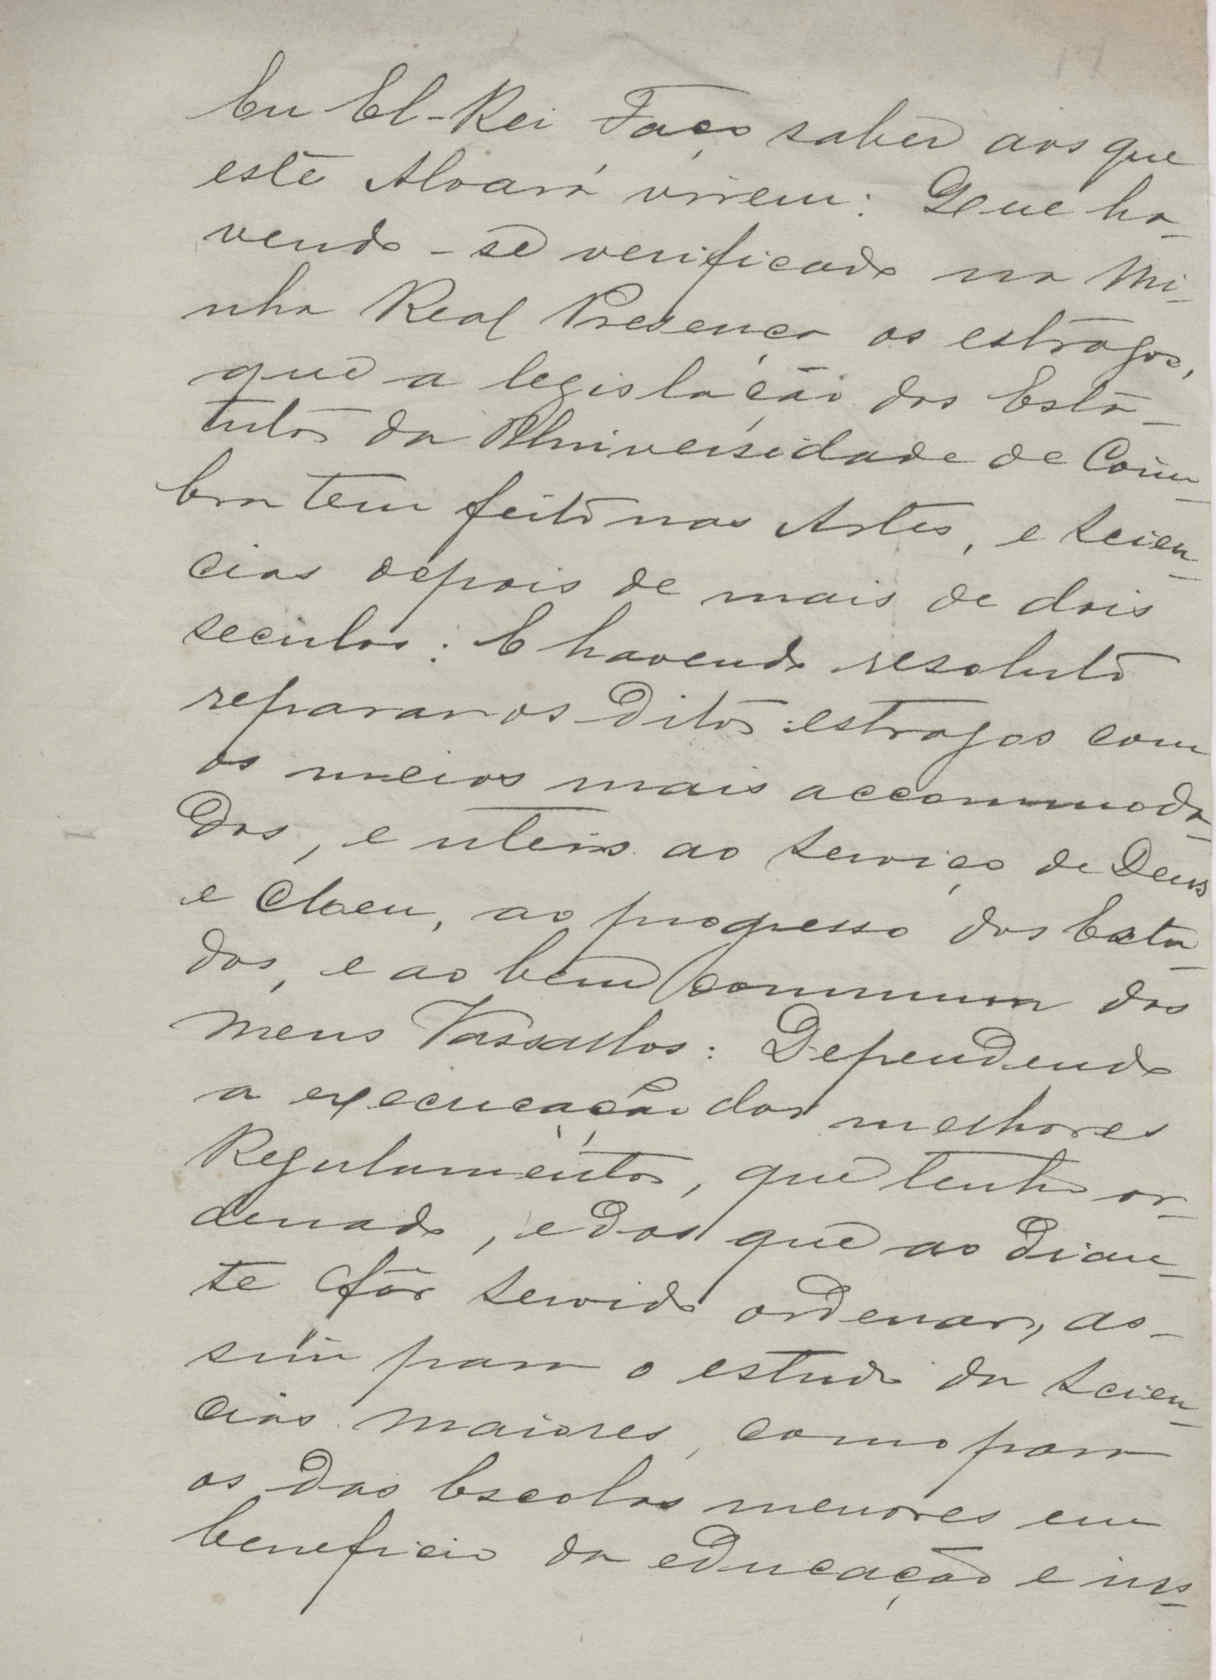 Eu El-Rei Faço saber aos que
este Alvará virem: Que ha-
vendo-se verificado na Mi-
nha Real Presença os estragos,
que a legislação dos Esta-
tutos da Universidade de Coim-
bra tem feito nas Artes, e Scien-
cias depois de mais de dois
seculos: E havendo resoluto
reparar os Ditos estragos com
os meios mais accommoda-
dos, e uteis ao Serviço de Deus
e Meu, ao progresso dos Esta-
dos, e ao bem commum dos
meus Vassallos: Dependendo
a execucação dos melhores
Regulamentos, que tenho or-
denado, e dos que ao dian-
te fôr servido ordenar, as-
sim para o estudo da Scien-
cias maiores, como para
os das Escolas menores em
beneficio da educação e ins-